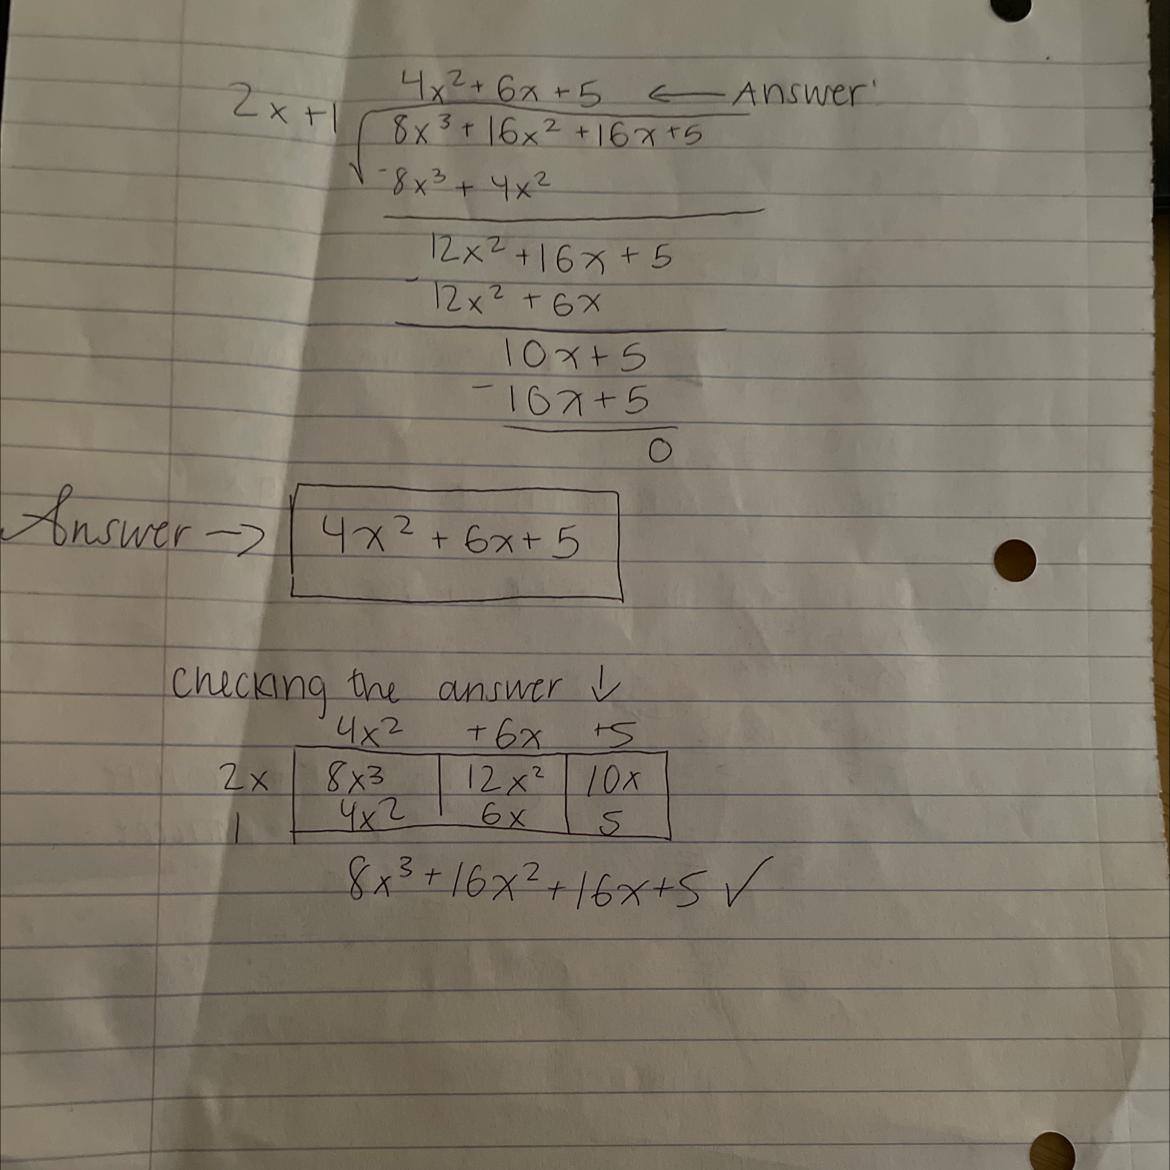 4x² + 6x + 5 ← Answer
2x + 1 √ 8x³ + 16x² + 16x + 5
- 8x³ + 4x²
12x² + 16x + 5
- 12x² + 6x
10x + 5
- 10x + 5
0
Answer → 4x² + 6x + 5
checking the answer ↓
4x² + 6x + 5
2x 8x³ 12x² 10x
1 4x² 6x 5
8x³ + 16x² + 16x + 5 ✓